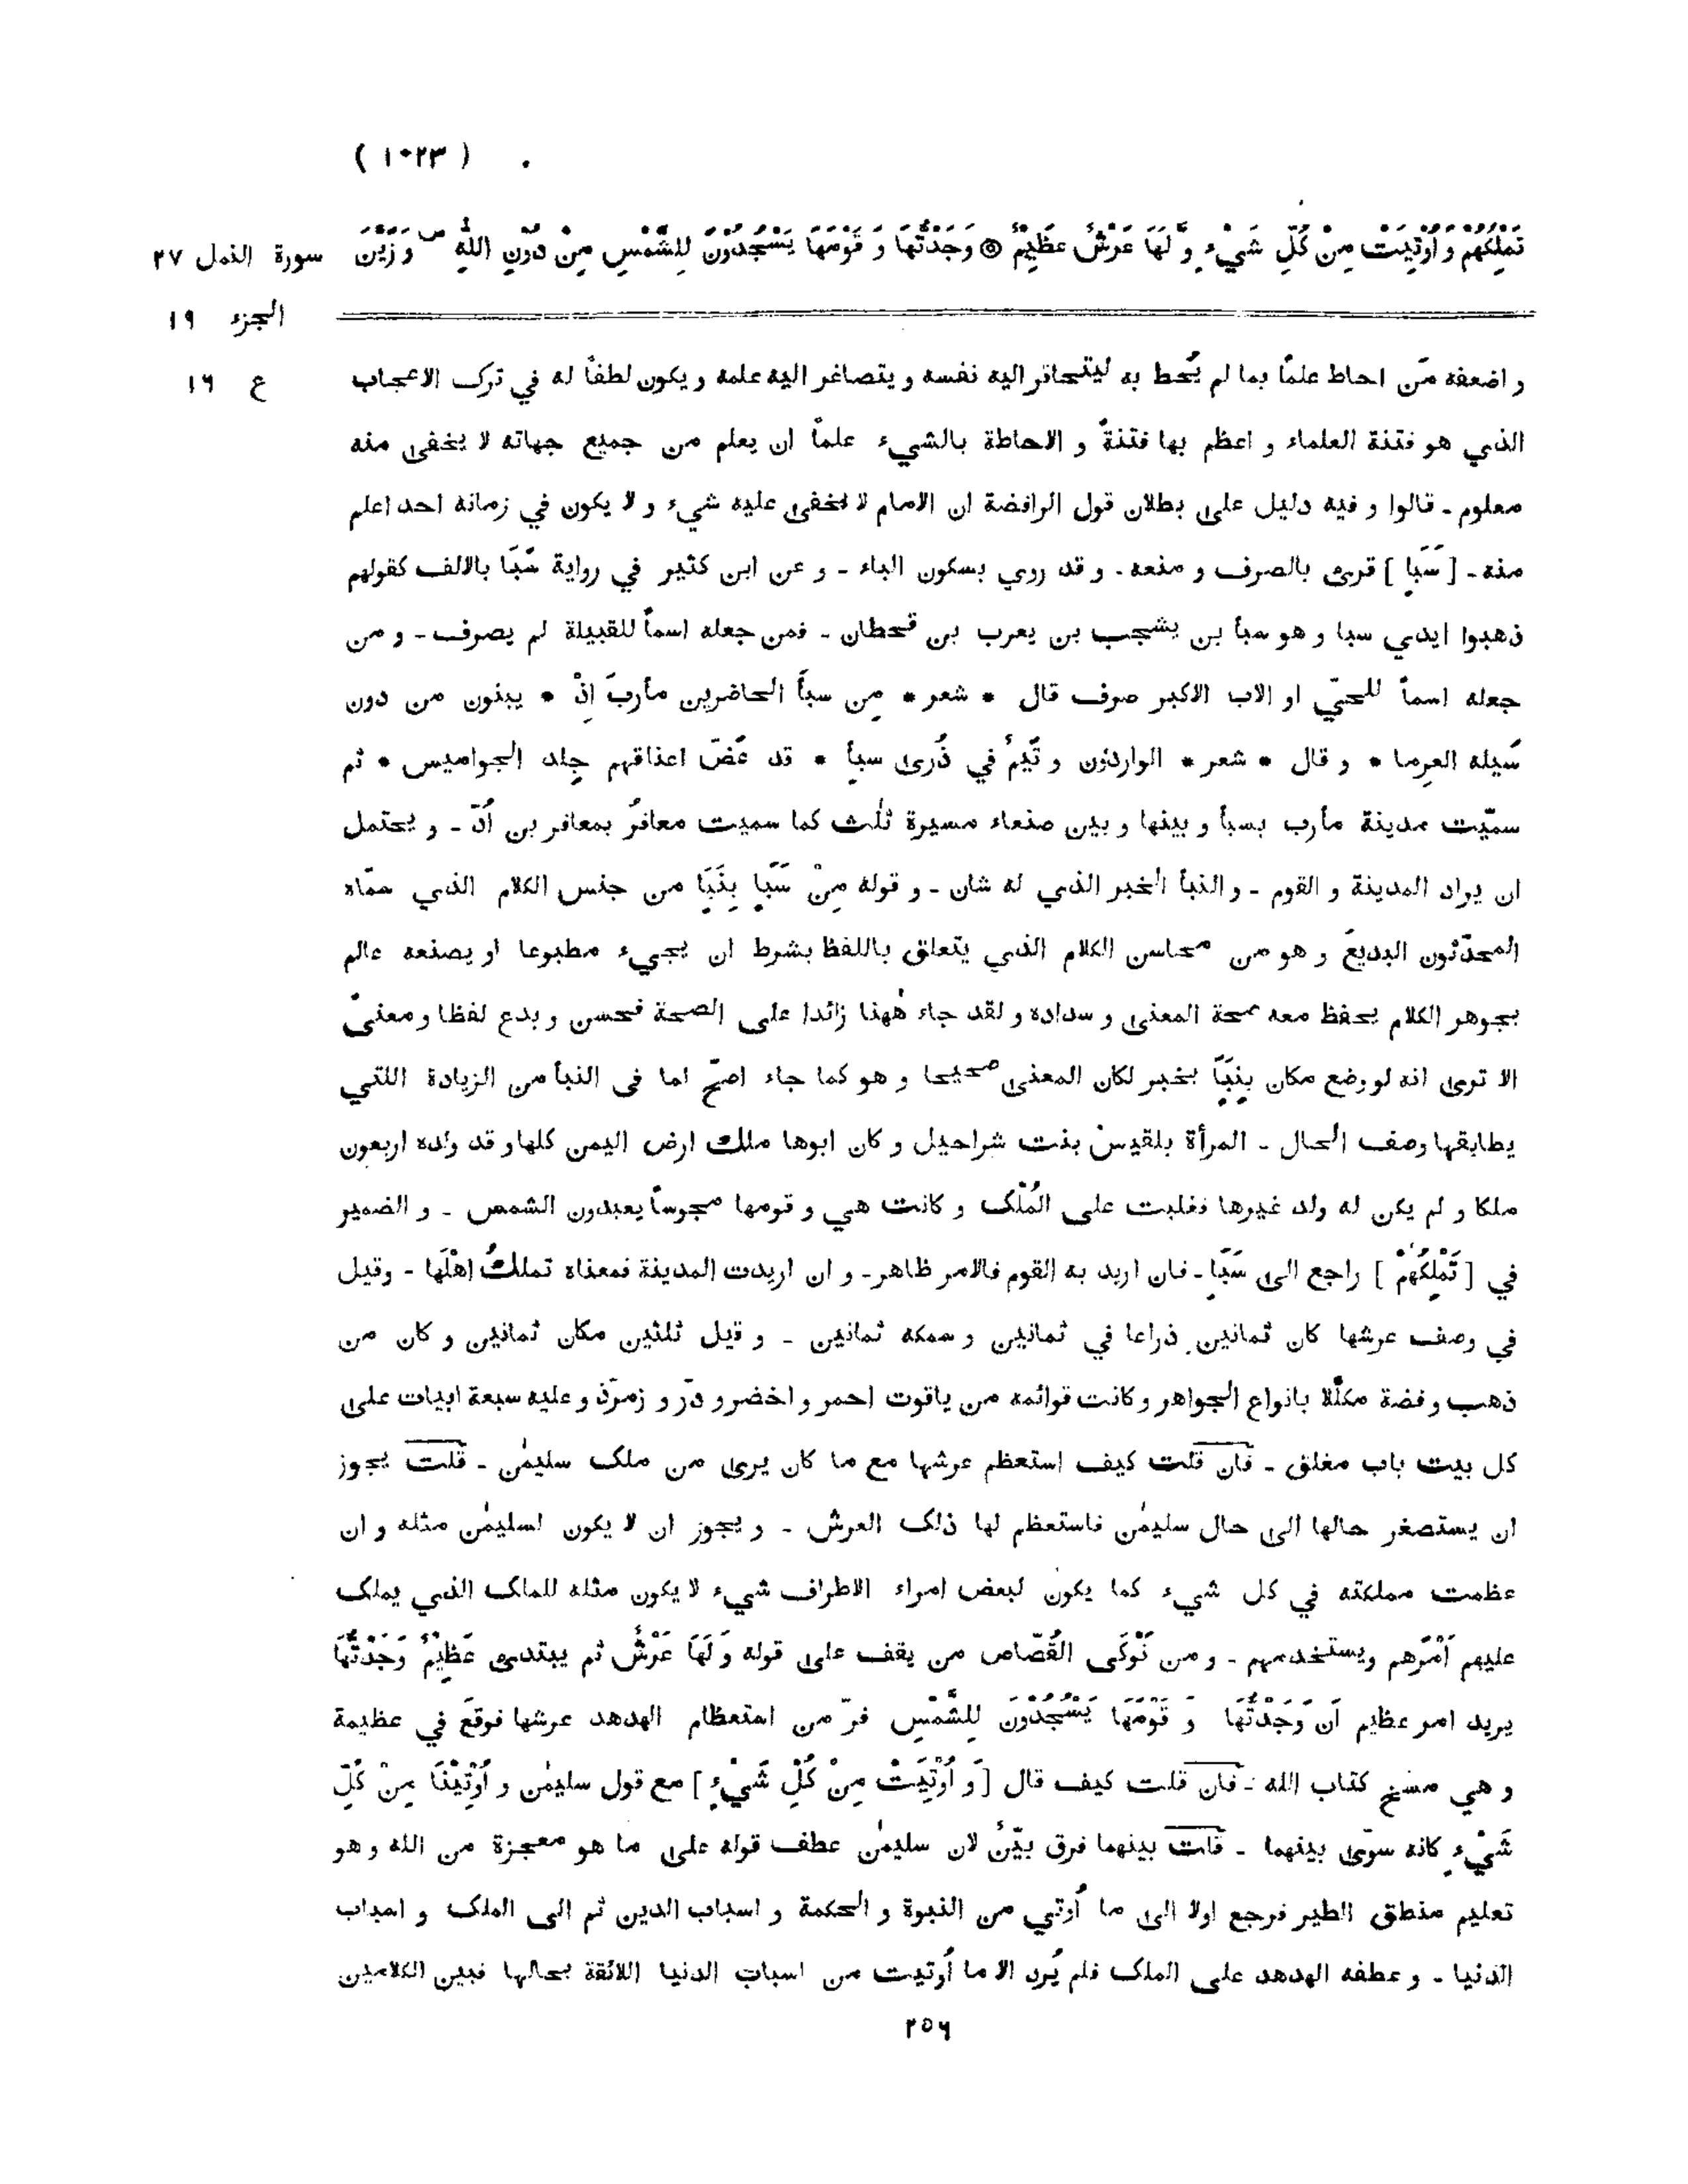 ( ۱۰۲۳ )
تَمْلِكُهُمْ وَاُوْتِيَتْ مِنْ كُلِّ شَيْءٍ وَّ لَهَا عَرْشٌ عَظِيْمٌ ۞ وَجَدْتُّهَا وَ قَوْمَهَا يَسْجُدُوْنَ لِلشَّمْسِ مِنْ دُوْنِ اللهِ ص وَ زَيَّنَ
سورة النمل ۲۷
الجزء ۱۹
ع ۱۶
و اضعفه مَن احاط علمًا بما لم يُحط به ليتحاقر اليه نفسه و يتصاغر اليه علمه و يكون لطفاً له في ترك الاعجاب
الذي هو فتنة العلماء و اعظم بها فتنةً و الاحاطة بالشيء علماً ان يعلم من جميع جهاته لا يخفى منه
معلوم ـ قالوا و فيه دليل على بطلان قول الرافضة ان الامام لا يخفى عليه شيء و لا يكون في زمانه احد اعلم
منه ـ [ سَبَاٍ ] قرئ بالصرف و منعه ـ و قد روي بسكون الباء ـ و عن ابن كثير في رواية سَبَا بالالف كقولهم
ذهبوا ايدي سبا و هو سبأ بن يشجب بن يعرب بن قحطان ـ فمن جعله اسماً للقبيلة لم يصرف ـ و من
جعله اسماً للحيّ او الاب الاكبر صرف قال * شعر * مِن سبأَ الحاضرين مأربَ اِذْ * يبنون من دون
سَيله العرِما * و قال * شعر * الواردون و تَيمٌ في ذُرى سبأٍ * قد عَضّ اعناقهم جِلد الجواميس * ثم
سمّيت مدينة مأرب بسبأ و بينها و بين صنعاء مسيرة ثلٰث كما سميت معافرُ بمعافر بن اُدّ ـ و يحتمل
ان يراد المدينة و القوم ـ و النبأ الخبر الذي له شان ـ و قوله مِنْ سَبَاٍ بِنَبَاٍ من جنس الكلام الذي سمّاه
المحدّثون البديعَ و هو من محاسن الكلام الذي يتعلق باللفظ بشرط ان يجيء مطبوعا او يصنعه عالم
بجوهر الكلام يحفظ معه صحة المعنى و سداده و لقد جاء هٰهنا زائدا على الصحة فحسن و بدع لفظا و معنىً
الا ترى انه لو وضع مكان بِنَبَاٍ بخبر لكان المعنى صحيحا و هو كما جاء اصحّ لما فى النبأ من الزيادة اللتي
يطابقها وصف الحال ـ المرأة بلقيسُ بنت شراحيل و كان ابوها ملك ارض اليمن كلها و قد ولده اربعون
ملكا و لم يكن له ولد غيرها فغلبت على المُلْك و كانت هي و قومها مجوساً يعبدون الشمس ـ و الضمير
في [ تَمْلِكُهُمْ ] راجع الى سَبَاٍ ـ فان اريد به القوم فالامر ظاهر ـ و ان اريدت المدينة فمعناه تملكُ اهْلَها ـ وقيل
في وصف عرشها كان ثمانين ذراعا في ثمانين و سمكه ثمانين ـ و قيل ثلثين مكان ثمانين و كان من
ذهب و فضة مكلَّلا بانواع الجواهر و كانت قوائمه من ياقوت احمر و اخضر و درّ و زمرّذ و عليه سبعة ابيات على
كل بيت باب مغلق ـ فان قلت كيف استعظم عرشها مع ما كان يرى من ملك سليمٰن ـ قلت يجوز
ان يستصغر حالها الى حال سليمٰن فاستعظم لها ذلك العرش ـ و يجوز ان لا يكون لسليمٰن مثله و ان
عظمت مملكته في كل شيء كما يكون لبعض امراء الاطراف شيء لا يكون مثله للملك الذي يملك
عليهم اَمْرهم ويستخدمهم ـ و من نَوْكَى القُصّاص من يقف على قوله وَ لَهَا عَرْشٌ ثم يبتدئ عَظِيْمٌ وَجَدْتُّهَا
يريد امر عظيم اَن وَجَدْتُّهَا وَ قَوْمَهَا يَسْجُدُوْنَ لِلشَّمْسِ فرّ من استعظام الهدهد عرشها فوقعَ في عظيمة
و هي مسخ كتاب الله ـ فان قلت كيف قال [ وَ اُوْتِيَتْ مِنْ كُلِّ شَيْءٍ ] مع قول سليمٰن و اُوْتِيْنَا مِنْ كُلِّ
شَيْءٍ كانه سوّى بينهما ـ قلت بينهما فرق بيّنٌ لان سليمٰن عطف قوله على ما هو معجزة من الله و هو
تعليم منطق الطير فرجع اولا الى ما اُوتي من النبوة و الحكمة و اسباب الدين ثم الى الملك و اسباب
الدنيا ـ و عطفه الهدهد على الملك فلم يُرِد الا ما اُوتيت من اسباب الدنيا اللائقة بحالها فبين الكلامين
۲۵۶